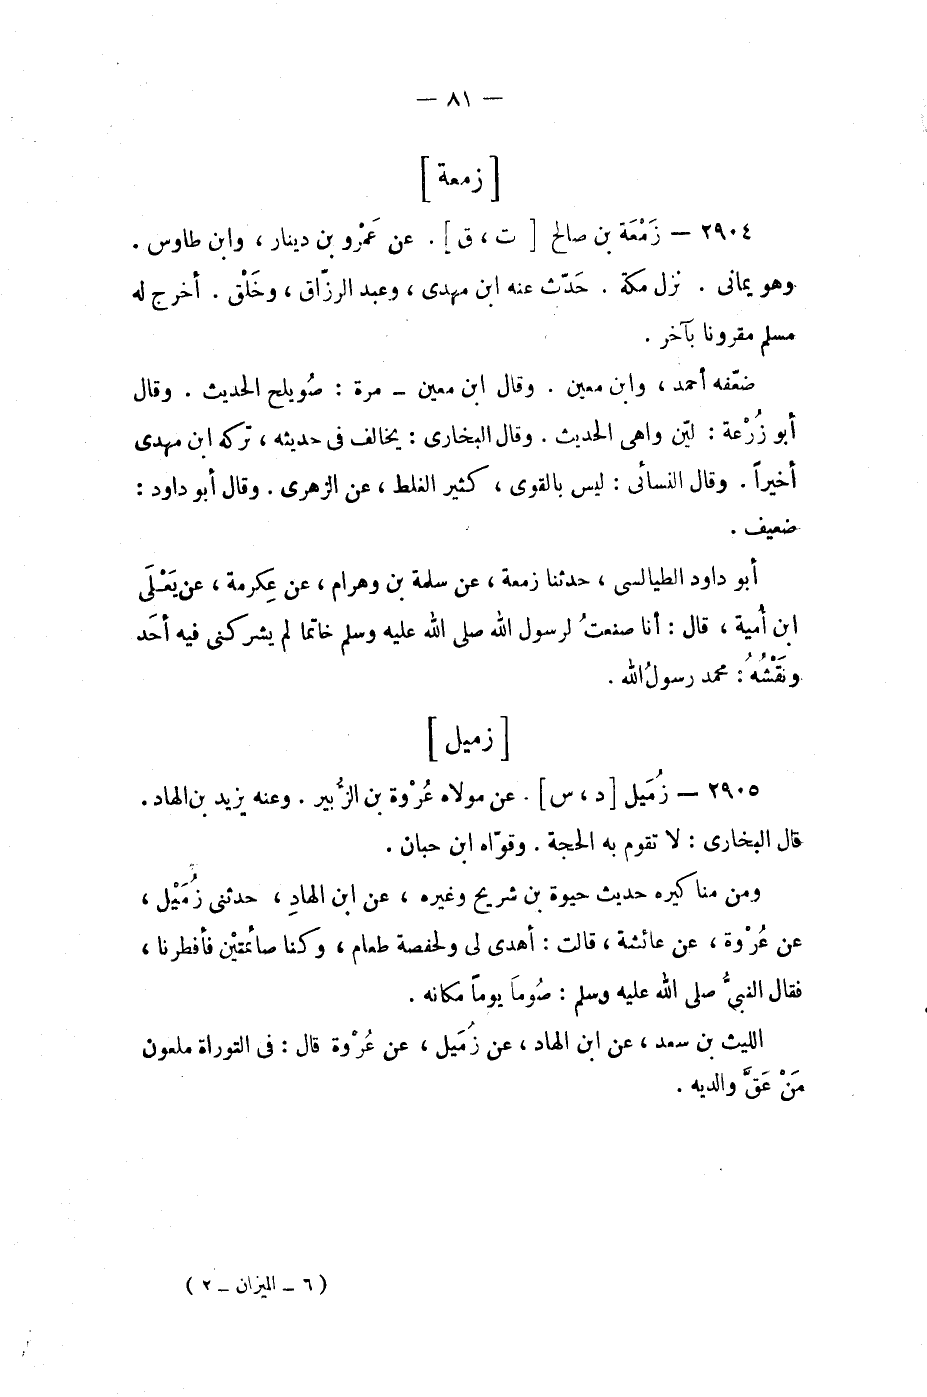 — ٨١ —
[ زمعة ]
٢٩٠٤ — زَمْعَة بن صالح [ ت ، ق ] . عن عَمْرو بن دينار ، وابن طاوس .
وهو يمانى . نزل مكة . حَدّث عنه ابن مهدى ، وعبد الرزّاق ، وخَلْق . أخرج له
مسلم مقرونا بآخر .
ضعّفه أحمد ، وابن معين . وقال ابن معين ـ مرة : صُويلح الحديث . وقال
أبو زُرْعة : ليّن واهى الحديث . وقال البخارى : يخالف فى حديثه ، تركه ابن مهدى
أخيراً . وقال النسأنى : ليس بالقوى ، كثير الغلط ، عن الزهرى . وقال أبو داود :
ضعيف .
أبو داود الطيالسى ، حدثنا زمعة ، عن سلمة بن وهرام ، عن عِكرمة ، عن يَعْلَى
ابن أُمية ، قال : أنا صنعتُ لرسول الله صلى الله عليه وسلم خاتما لم يشركنى فيه أحَد
ونَقْشُهُ : محمد رسولُ الله .
[ زميل ]
٢٩٠٥ — زُمَيل [ د ، س ] . عن مولاه عُرْوة بن الزُّبير . وعنه يزيد بن الهاد .
قال البخارى : لا تقوم به الحجة . وقوّاه ابن حبان .
ومن مناكيره حديث حيوة بن شريح وغيره ، عن ابن الهادِ ، حدثنى زُمَيْل ،
عن عُرْوة ، عن عائشة ، قالت : أهدى لى ولحفصة طعام ، وكنا صائمتيْن فأفطرنا ،
فقال النبيُّ صلى الله عليه وسلم : صُومَا يوماً مكانه .
الليث بن سعد ، عن ابن الهاد ، عن زُمَيل ، عن عُرْوة قال : فى التوراة ملعون
مَنْ عَقَّ والديه .
( ٦ ـ الميزان ـ ٢ )